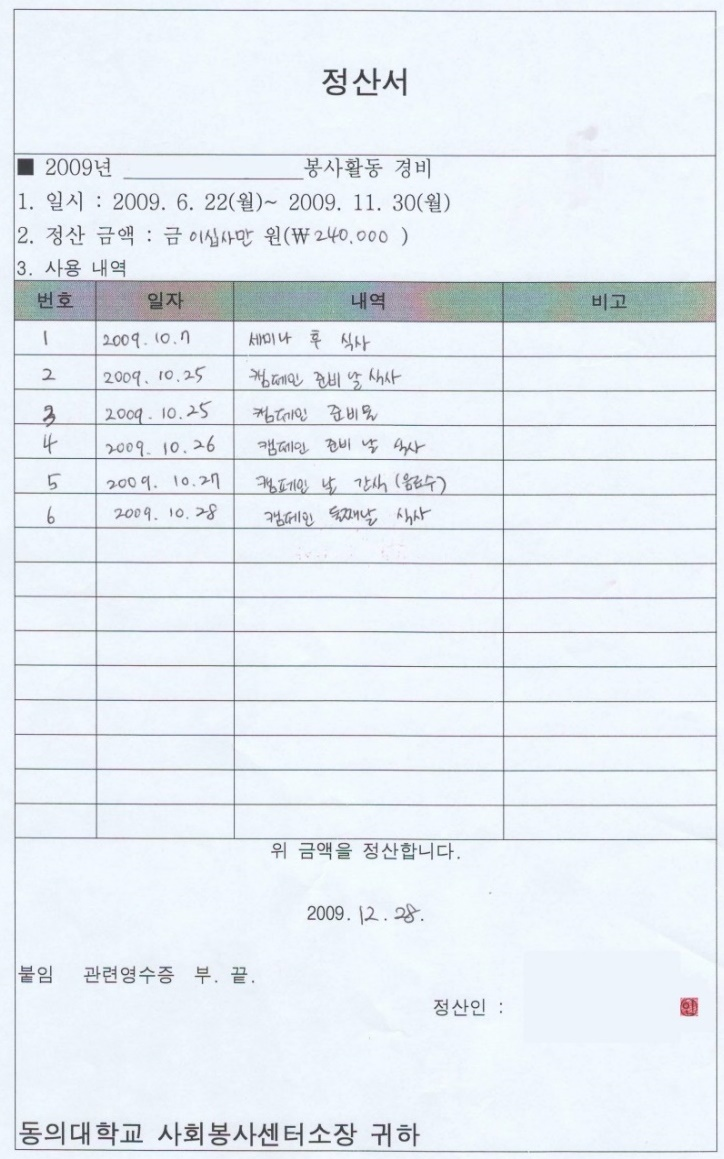 정산서
■ 2009년 ____________ 봉사활동 경비
1. 일시 : 2009. 6. 22(월)~ 2009. 11. 30(월)
2. 정산 금액 : 금 이십사만 원(₩240.000 )
3. 사용 내역
번호 일자 내역 비고
1 2009.10.7 세미나 후 식사
2 2009.10.25 캠페인 준비 날 식사
3 2009.10.25 캠페인 준비물
4 2009.10.26 캠페인 준비 날 식사
5 2009.10.27 캠페인 날 간식 (음료수)
6 2009.10.28 캠페인 둘째날 식사
위 금액을 정산합니다.
2009.12.28.
붙임 관련영수증 부. 끝.
정산인 : 인
동의대학교 사회봉사센터소장 귀하